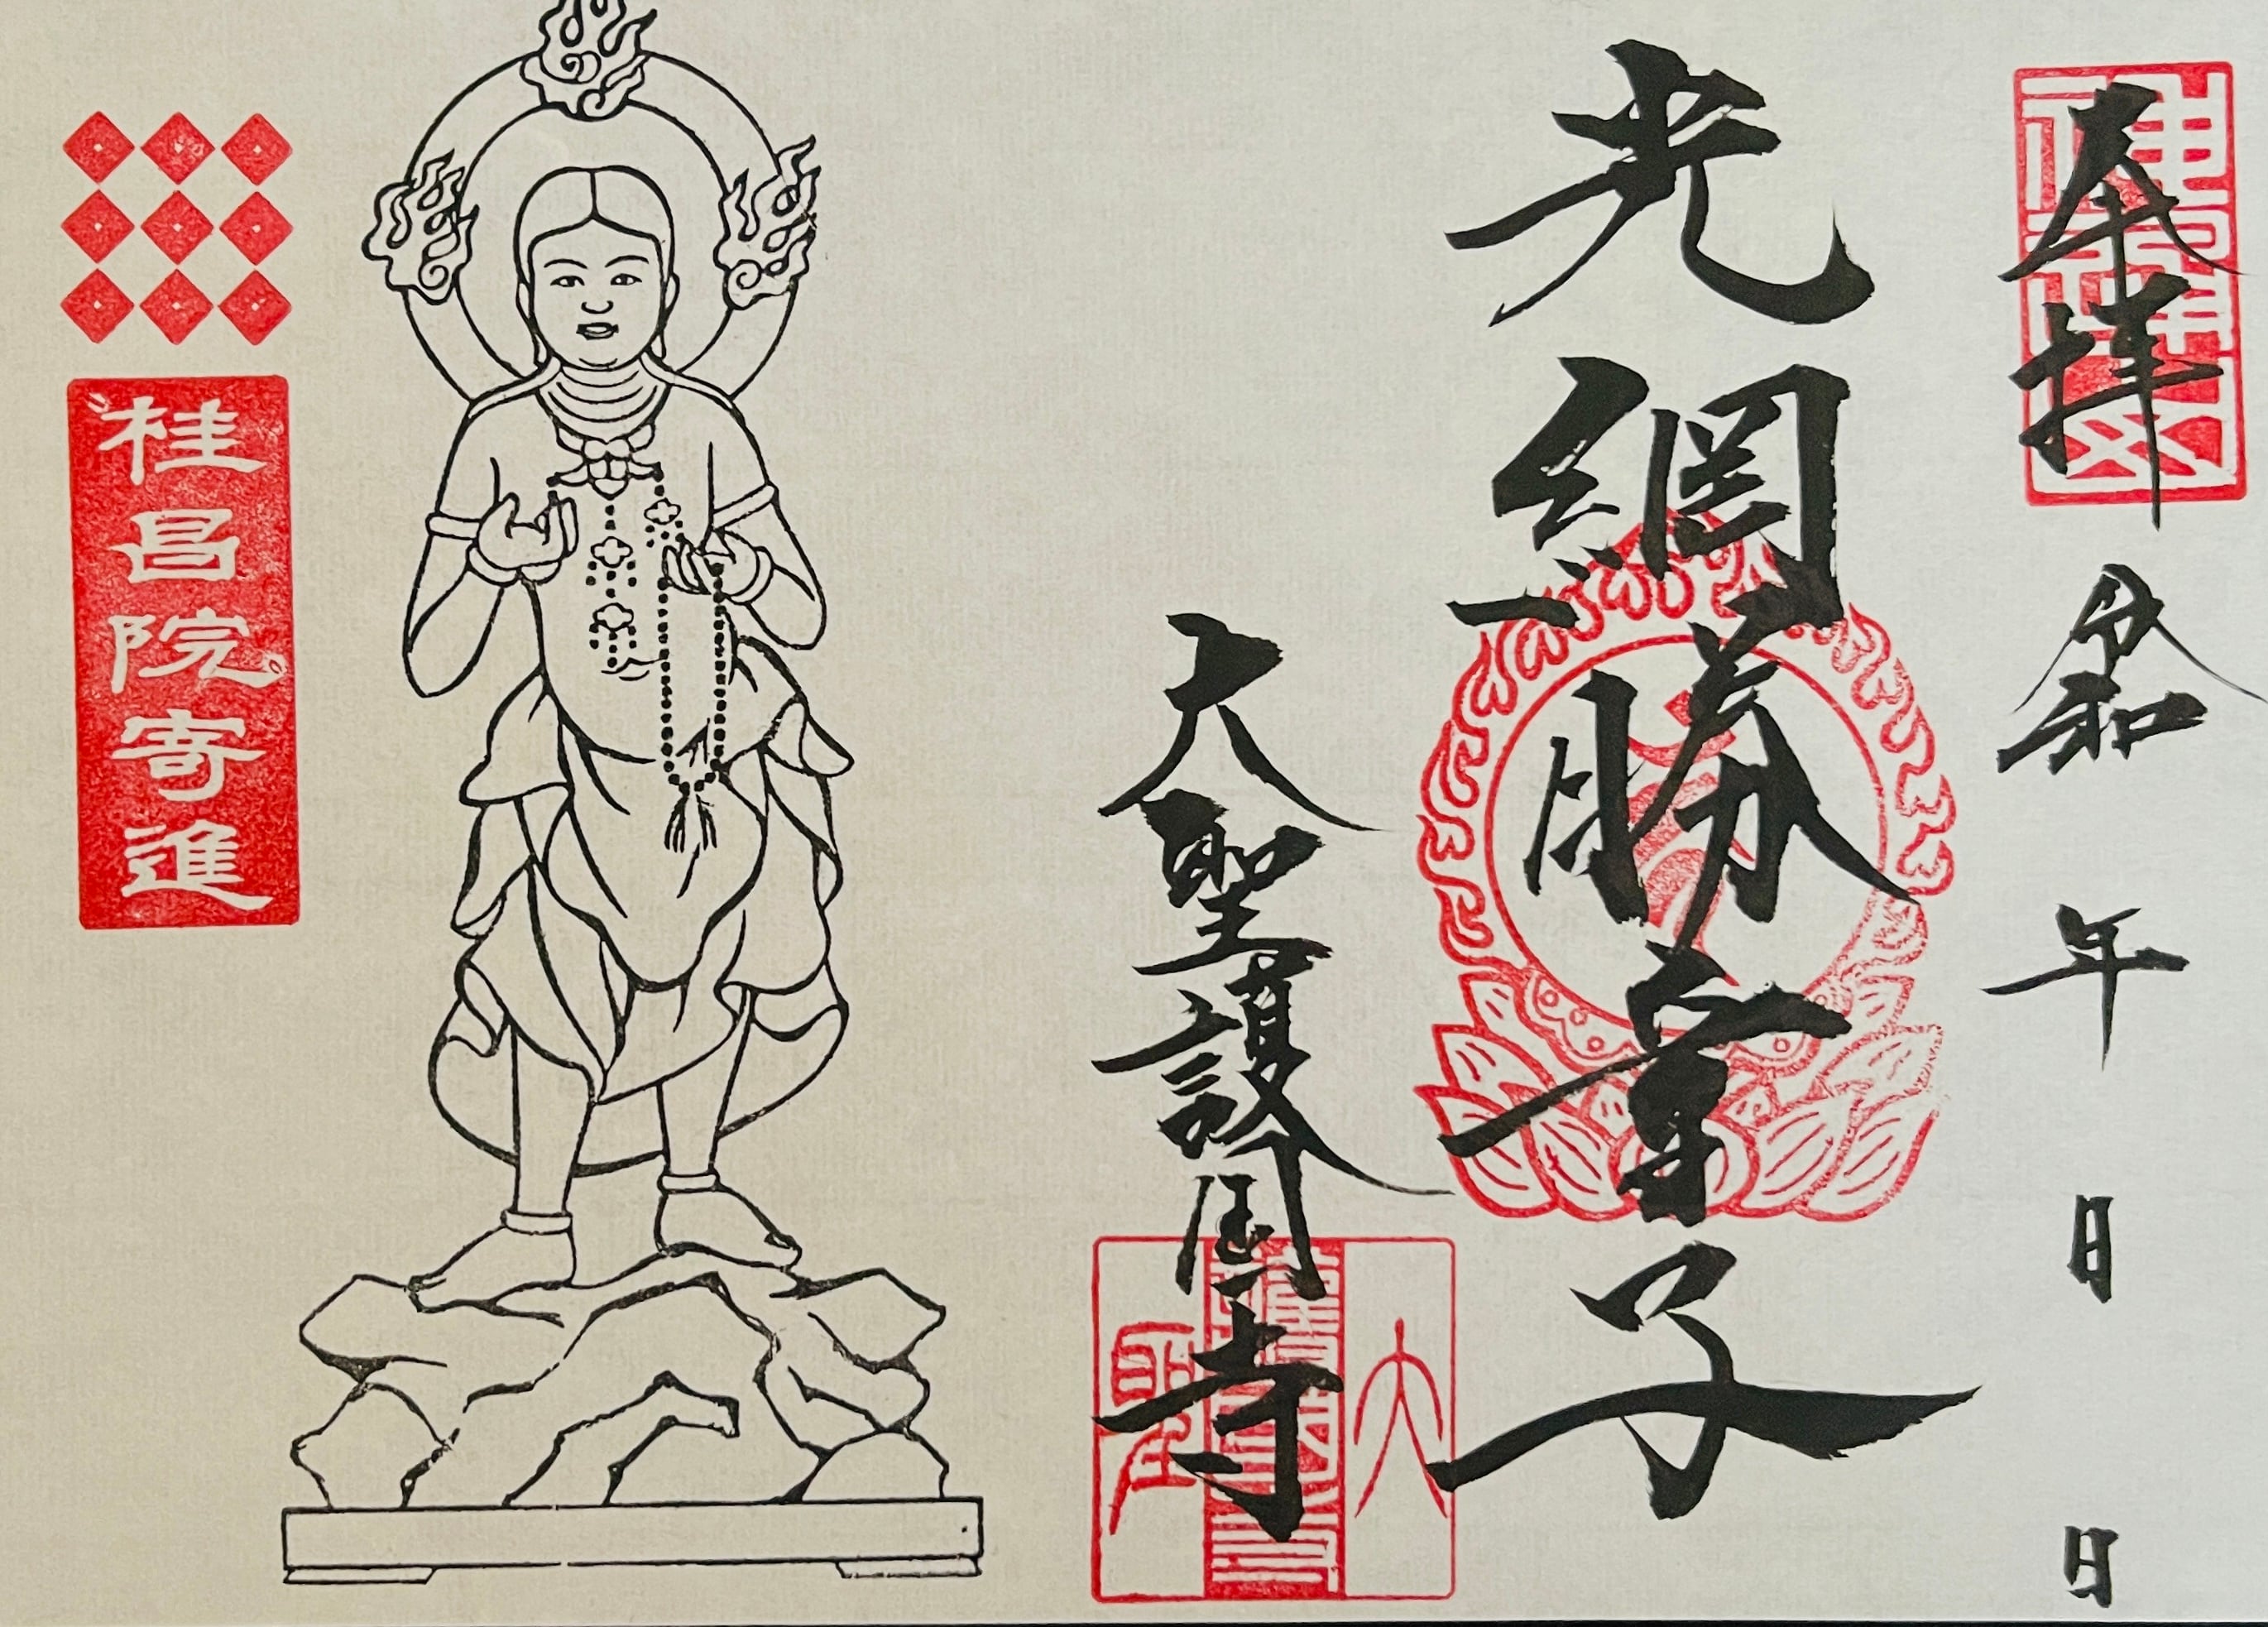 奉拝 令和 年 月 日
光網勝童子
大聖護国寺
桂昌院寄進